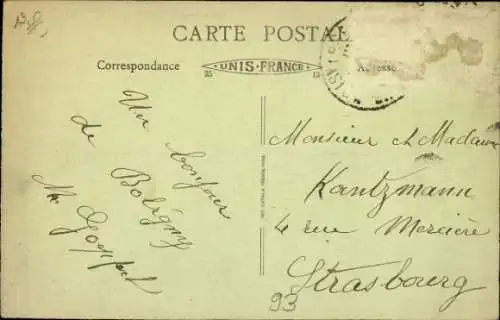 CARTE POSTALE
Correspondance
UNIS-FRANCE
Adresse
Un bonjour
de
Boligny
Monsieur et Madame
Kantzmann
4 rue Mercière
Strasbourg
93